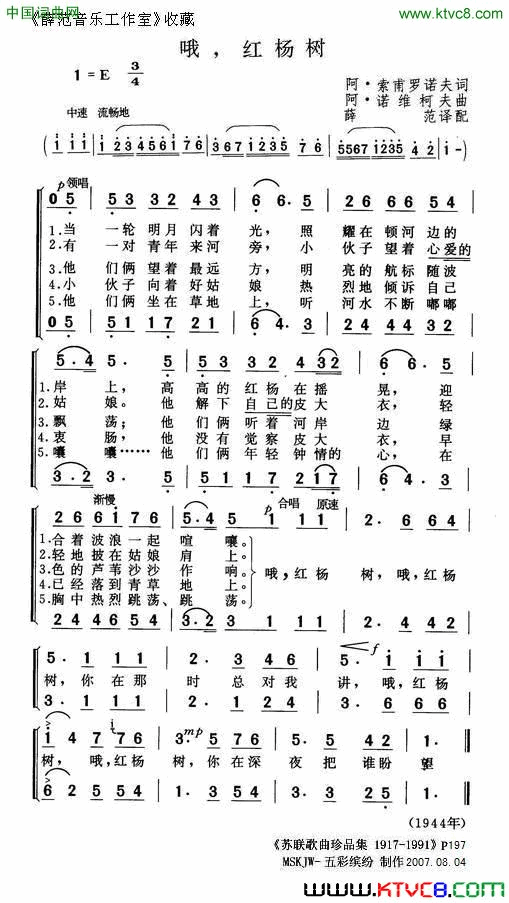 中国词典网
www.ktvc8.com
《薛范音乐工作室》收藏
哦，红杨树
1 = E 3/4
阿·索甫罗诺夫词
阿·诺维柯夫曲
薛范译配
中速 流畅地
( i i i | i 2 3 4 5 6 i 7 6 | i i i 2 3 5 | 5 5 6 7 i 2 3 5 | i - )
p 领唱
0 5 | 5 3 3 2 4 3 | 6 6. 5 | 2 6 6 6 5 4
1.当一轮明月闪着光，照耀在顿河边的
2.有一对青年来河旁，小伙子望着心爱的
3.他们俩望着最远方，明亮的航标随波
4.小伙子向着好姑娘热烈地倾诉自己
5.他们俩坐在草地上，听河水不断嘟嘟
0 5 | 5 1 1 7 2 1 | 6 4. 3 | 2 4 4 4 3 2
5. 4 5. 5 | 5 3 3 2 4 3 2 | 6 6. 5
1.岸上，高高的红杨在摇晃，迎
2.姑娘。他解下自己的皮大衣，轻
3.飘荡；他们俩听着河岸边绿
4.衷肠，他没有觉察皮大衣，早
5.嚷嚷……他们俩年轻钟情的心，在
3. 2 3. 5 | 5 1 1 7 2 1 7 | 6 4. 3
渐慢
p 合唱 原速
2 6 6 i 7 6 | 5. 4 5 1 1 1 | 2. 6 6 4
1.合着波浪一起喧嚷。
2.轻地披在姑娘肩上。
3.色的芦苇沙沙作响。
4.已经落到青草地上。
5.胸中热烈跳荡、跳荡。
哦，红杨树，哦，红杨
2 4 4 6 5 4 | 3. 2 3 1 1 1 | 2. 4 4 2
5. 1 1 1 | 2. 3 4 6 | 5. 1 1 1
f
树，你在那时总对我讲，哦，红杨
3. 1 1 1 | 2. 1 2 4 | 3. 6 6 6
i
mp
1 4 7 7 6 | 3. 5 7 6 | 5. 5 4 2 | 1.
树，哦，红杨树，你在深夜把谁盼望
6 2 5 5 5 | 1. 2 5 4 | 3. 5 4 2 | 1.
(1944年)
《苏联歌曲珍品集 1917-1991》P197
MSKJW-五彩缤纷 制作2007.08.04
www.KTVC8.com